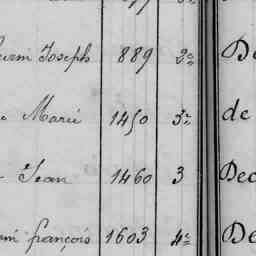 Joseph 889 2e De
Marie 1450 3e de
Jean 1460 3 Dec
françois 1603 4e De